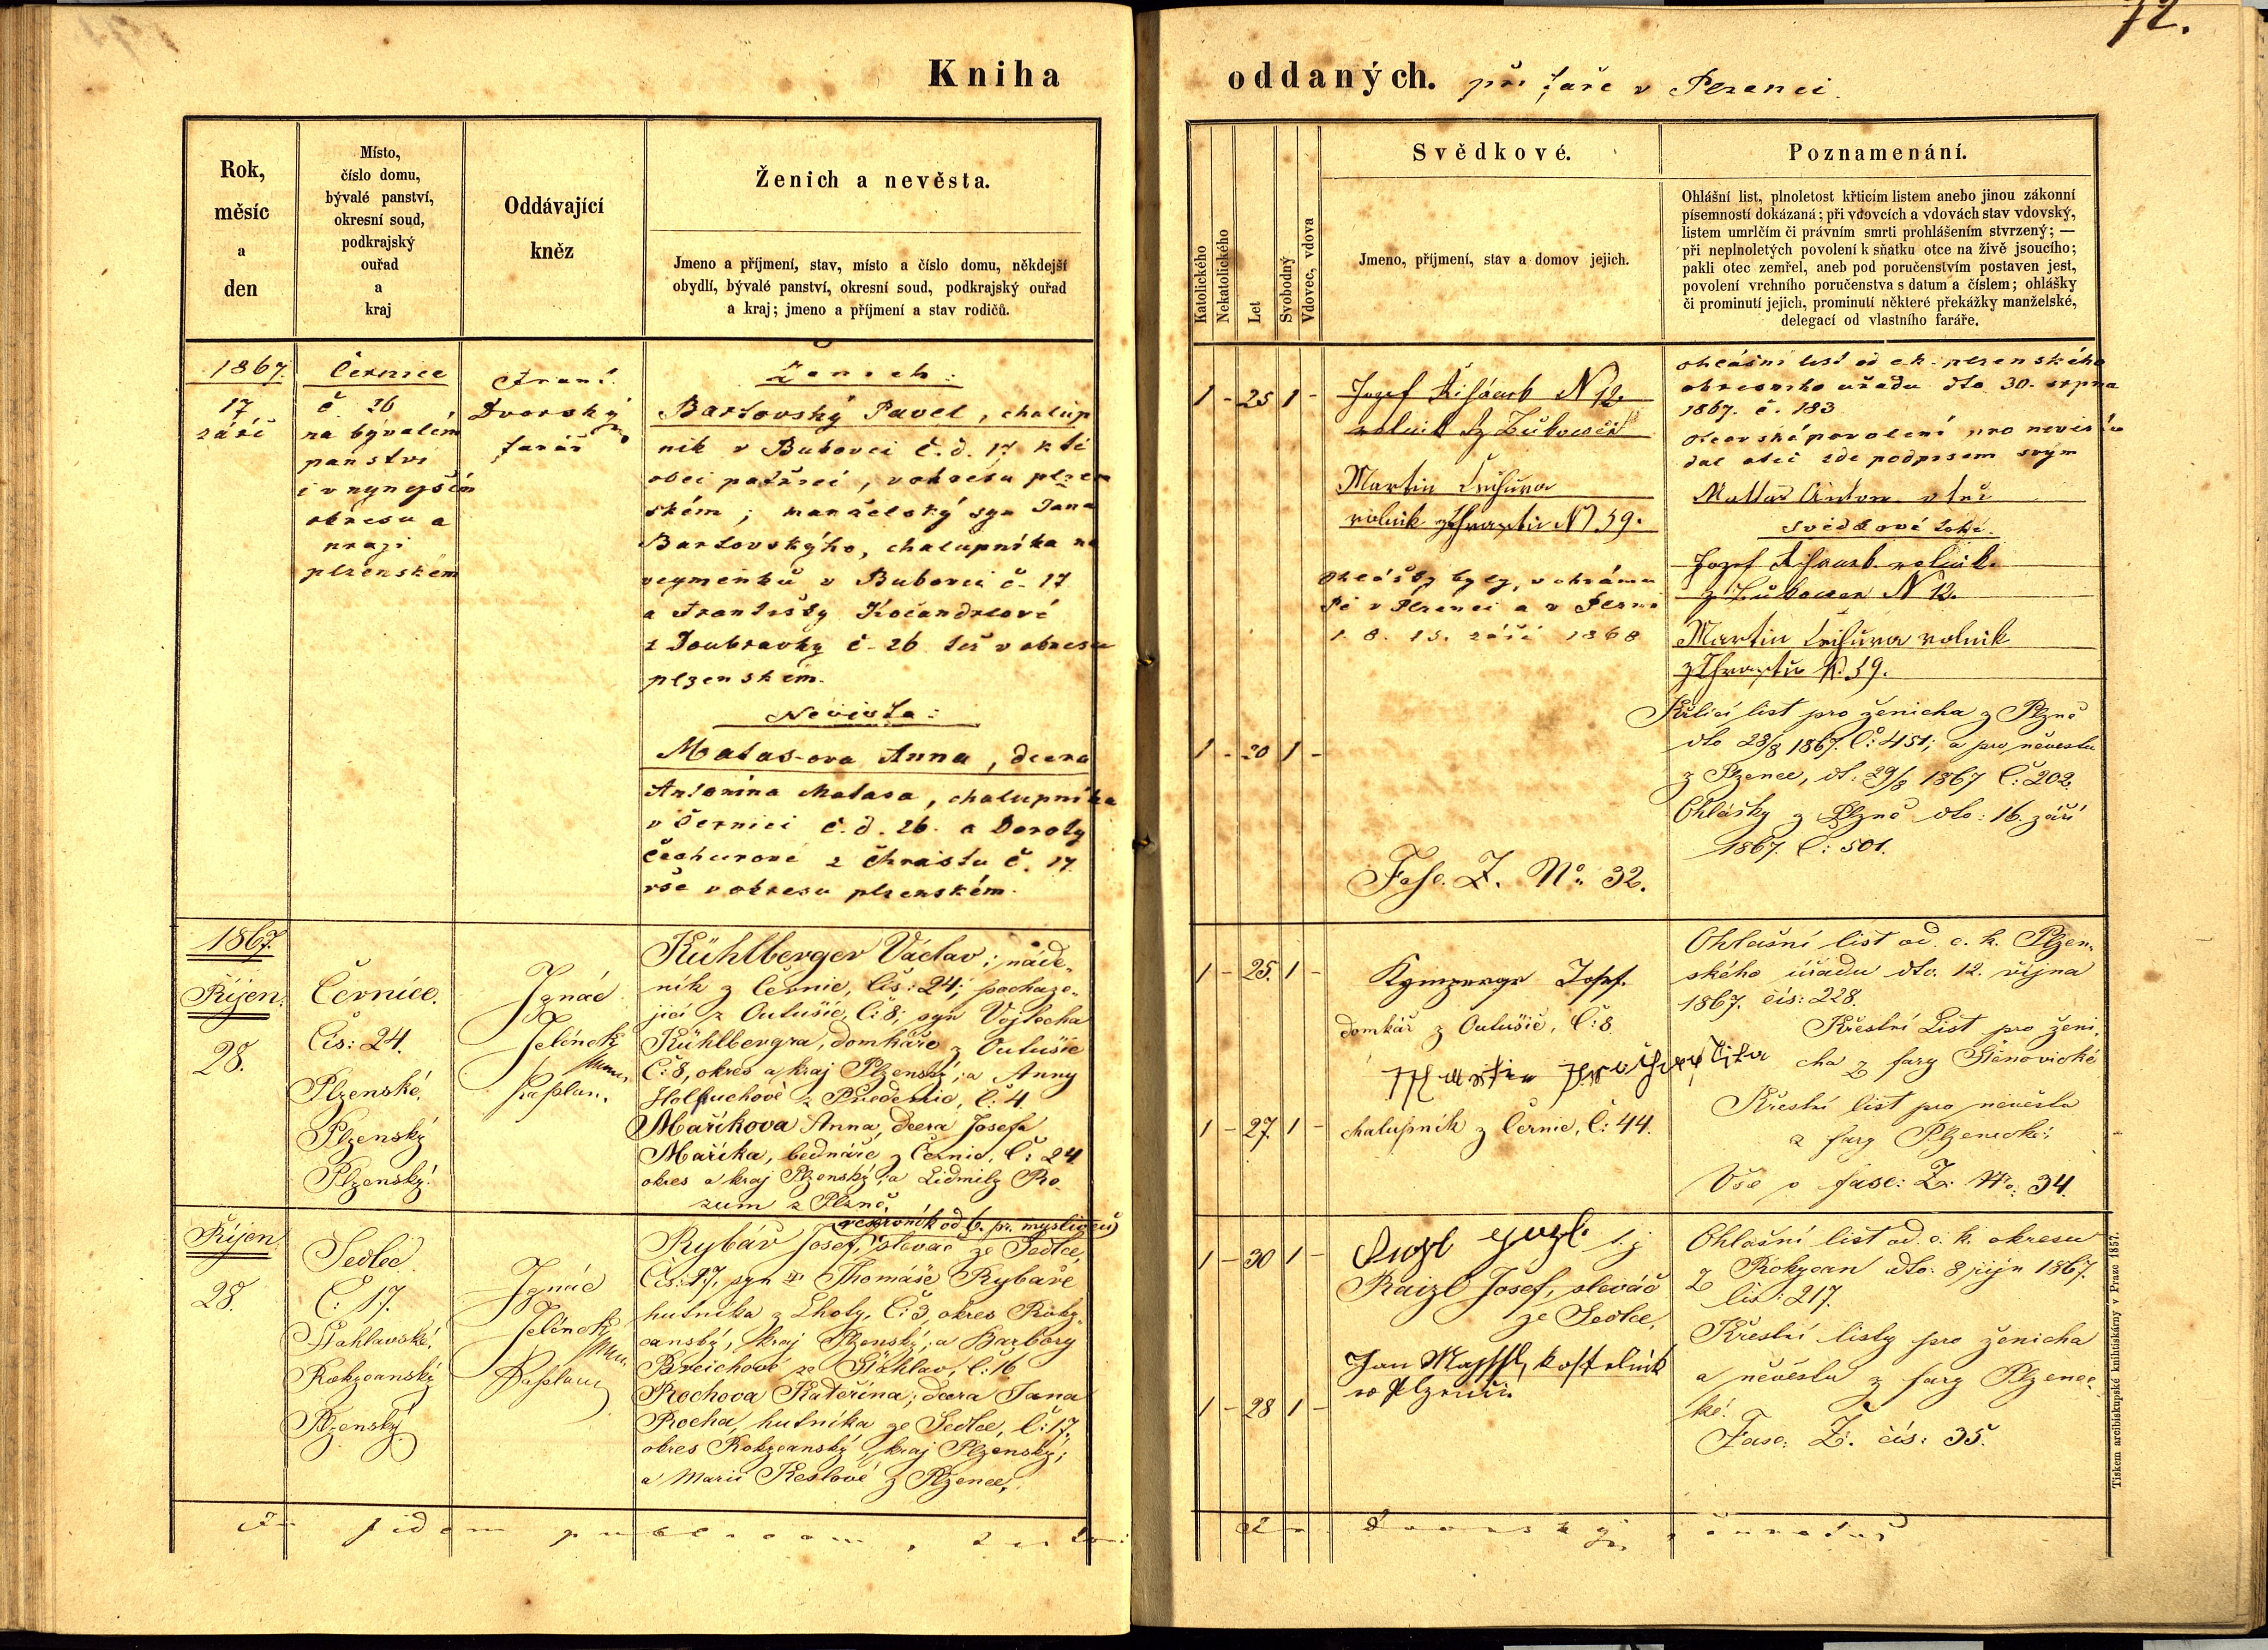 72.
Kniha
oddaných. při faře v Plzenci
Rok,
měsíc
a
den
Místo,
číslo domu,
bývalé panství,
okresní soud,
podkrajský
ouřad
a
kraj
Oddávající
kněz
Ženich a nevěsta.
Jmeno a příjmení, stav, místo a číslo domu, někdejší
obydlí, bývalé panství, okresní soud, podkrajský ouřad
a kraj; jmeno a příjmení a stav rodičů.
Katolického
Nekatolického
Let
Svobodný
Vdovec, vdova
Svědkové.
Jmeno, příjmení, stav a domov jejich.
Poznamenání.
Ohlášní list, plnoletost křticím listem anebo jinou zákonní
písemností dokázaná; při vdovcích a vdovách stav vdovský,
listem umrlčím či právním smrti prohlášením stvrzený; —
při neplnoletých povolení k sňatku otce na živě jsoucího;
pakli otec zemřel, aneb pod poručenstvím postaven jest,
povolení vrchního poručenstva s datum a číslem; ohlášky
či prominutí jejich, prominutí některé překážky manželské,
delegací od vlastního faráře.
1867.
17
září
Černice
č. 26
na bývalém
panství
i v nynejším
okresu a
kraji
plzenském
Frant.
Dvorský
farář
Ženich:
Bartovský Pavel, chalup
ník v Bukovci č. d. 17 k té
obci patřící, v okresu plzen
ském; manželský syn Jana
Bartovskýho, chalupníka na
vejminku v Bukovci č. 17
a Františky Kočandrlové
z Doubravky č. 26 též v okresu
plzenském.
Nevěsta:
Matas-ova Anna, dcera
Antonína Matasa, chalupníka
v Černici č. d. 26. a Doroty
Čechurové z Chvástu č. 17.
vše v okresu plzenském.
1 - 25 1 -
1 - 20 1 -
N 12.
rolník
Martin
rolník N 59.
Ohlášky byly v chrámu
Páně v Plzenci a v Plzni
1. 8. 15. září 1868
Fasc. Z. No. 32.
ohlášní list od c.k. plzenského
okresního uřadu dto 30. srpna
1867. č. 183
Otcovské povolení pro nevěstu
dal otec zde podpisem svým
Mattas Anton otec
Svědkové toho.
Jozef rolník
N 12.
Martin rolník
N. 59.
Křticí list pro ženicha z Plzně
dto 28/8 1867. Č: 451; a pro nevěstu
z Plzence, dt: 29/8 1867 Č: 202.
Ohlášky z Plzně dto: 16. září
1867. Č: 501.
1867.
Říjen.
28.
Černice.
Čís: 24.
Plzenské.
Plzenský
Plzenský.
Ignác
Jelínek
Kaplan.
Kühlberger Václav; náde-
ník z Černic, Čís: 24; pocháze-
jící z Outušic, Č: 8; syn Vojtěcha
Kühlbergra, domkáře z Outušic
Č: 8, okres a kraj Plzenský; a Anny
z Č: 4.
Maříkova Anna, dcera Josefa
Maříka, bednáře z Černic, Č: 24
okres a kraj Plzenský; a Lidmily Ro-
zum z Plzně.
1 - 25. 1 -
1 - 27. 1 -
Josef.
domkář z Outušic, Č: 8
Martin
chalupník z Černic, Č: 44.
Ohlašní list od c. k. Plzen-
ského úřadu dto. 12. října
1867. čís: 228.
Křestní List pro ženi-
cha z fary Štěnovické
Křestní list pro nevěstu
z fary Plzenecké;
Vše v fasc: Z: No: 34.
Říjen
28.
Sedlec.
Č: 17.
Šťáhlavské.
Rokycanský
Plzenský
Ignác
Jelínek
Kaplan
Rybář Josef, slevač ze Sedlce,
Čís: 17, syn Thomáše Rybáře
hutníka z Lhoty, Č: 3, okres Roky-
canský, kraj Plzenský; a Barbory
Breichové ze Šťáhlav, Č: 16
Rochova Kateřina; dcera Jana
Rocha, hutníka ze Sedlce, Č: 17,
okres Rokycanský, kraj Plzenský;
a Marie Keslové z Plzence,
1 - 30 1 -
1 - 28 1 -
Raizl Josef, slevač
ze Sedlce,
Jan kostelník
v Plzenci.
Ohlašní list od c. k. okresu
z Rokycan dto: 8 říjn 1867.
čís: 217.
Křestní listy pro ženicha
a nevěstu z fary Plzenec-
ké.
Fasc: Z. čís: 35.
In fidem publicam,
Tiskem arcibiskupské knihtiskárny v Praze 1857.